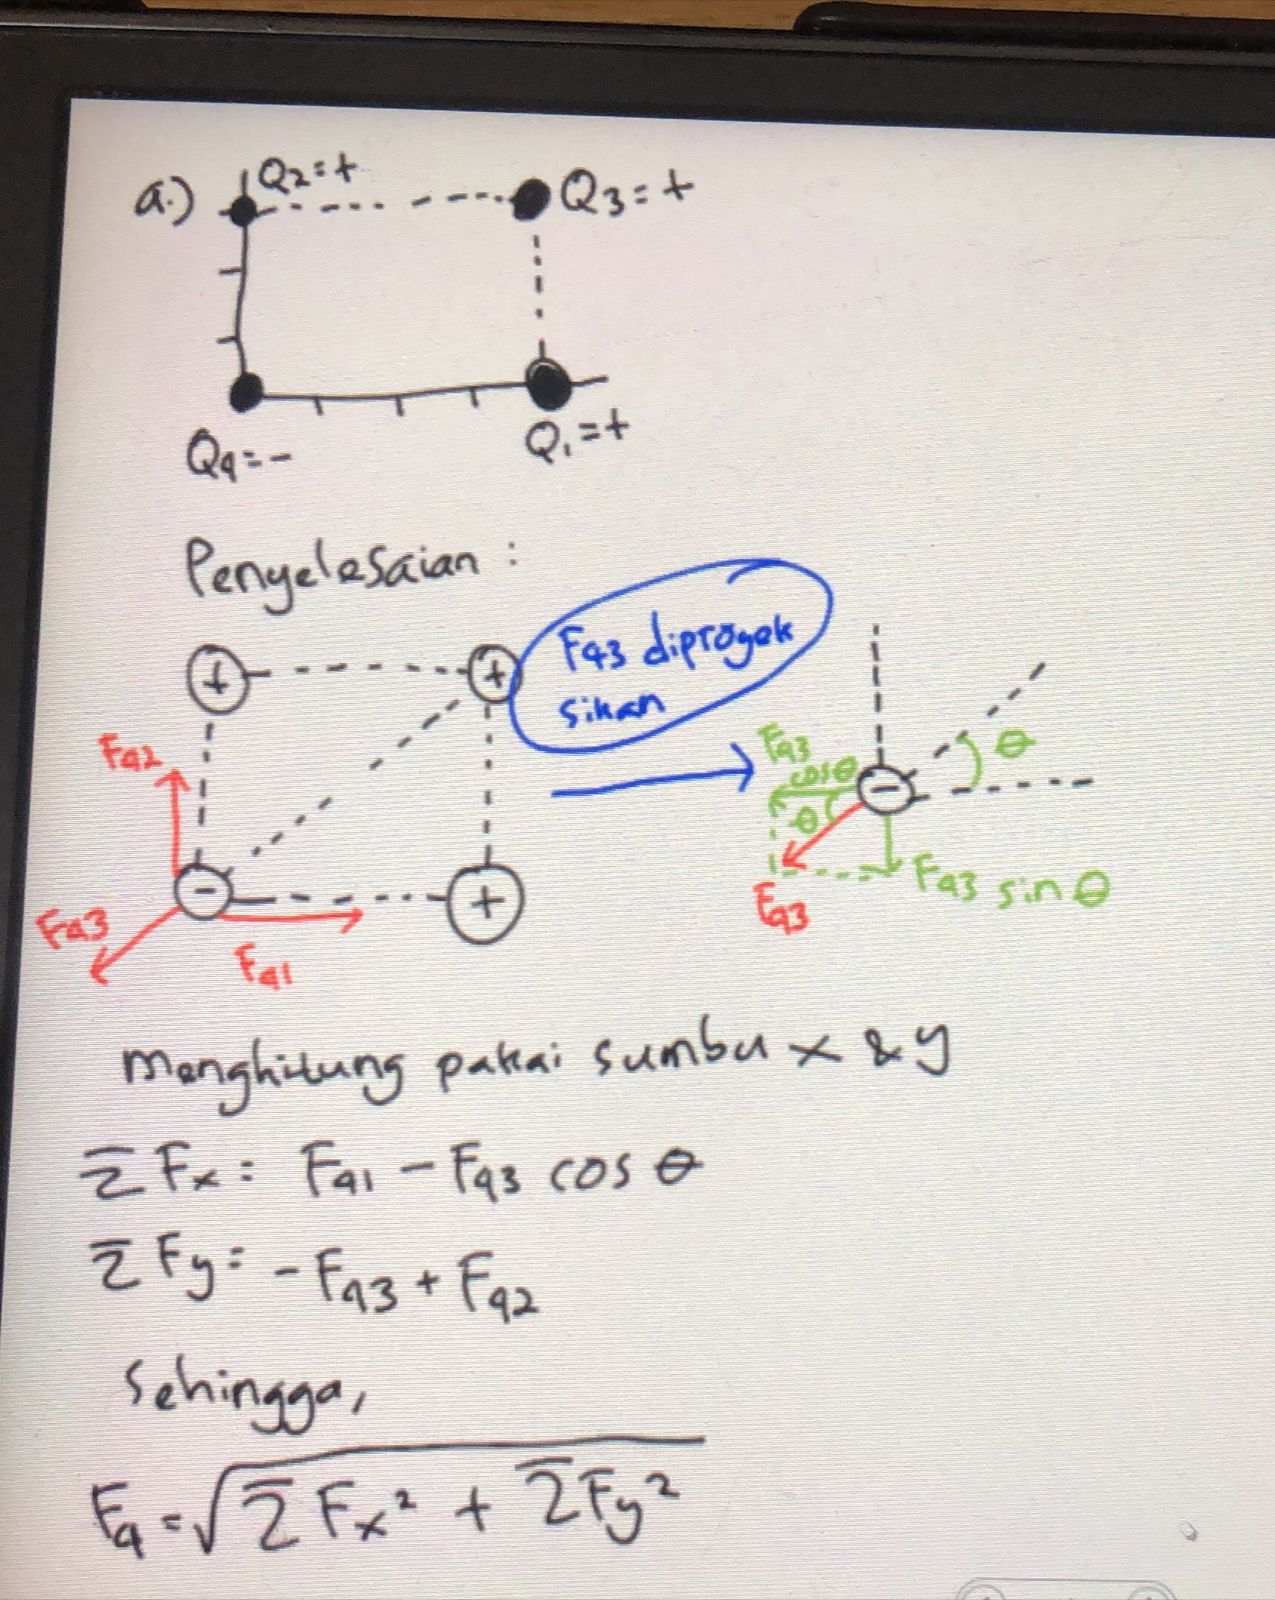 a.)
Q2=+
Q3=+
Q4=-
Q1=+
Penyelesaian :
+
+
F43 diproyek
sikan
F42
-
+
F43
F41
F43
cosθ
θ
-
θ
F43 sin θ
F43
Menghitung pakai sumbu x & y
Σ Fx = F41 - F43 cos θ
Σ Fy = - F43 + F42
Sehingga,
F4 = √ΣFx² + ΣFy²